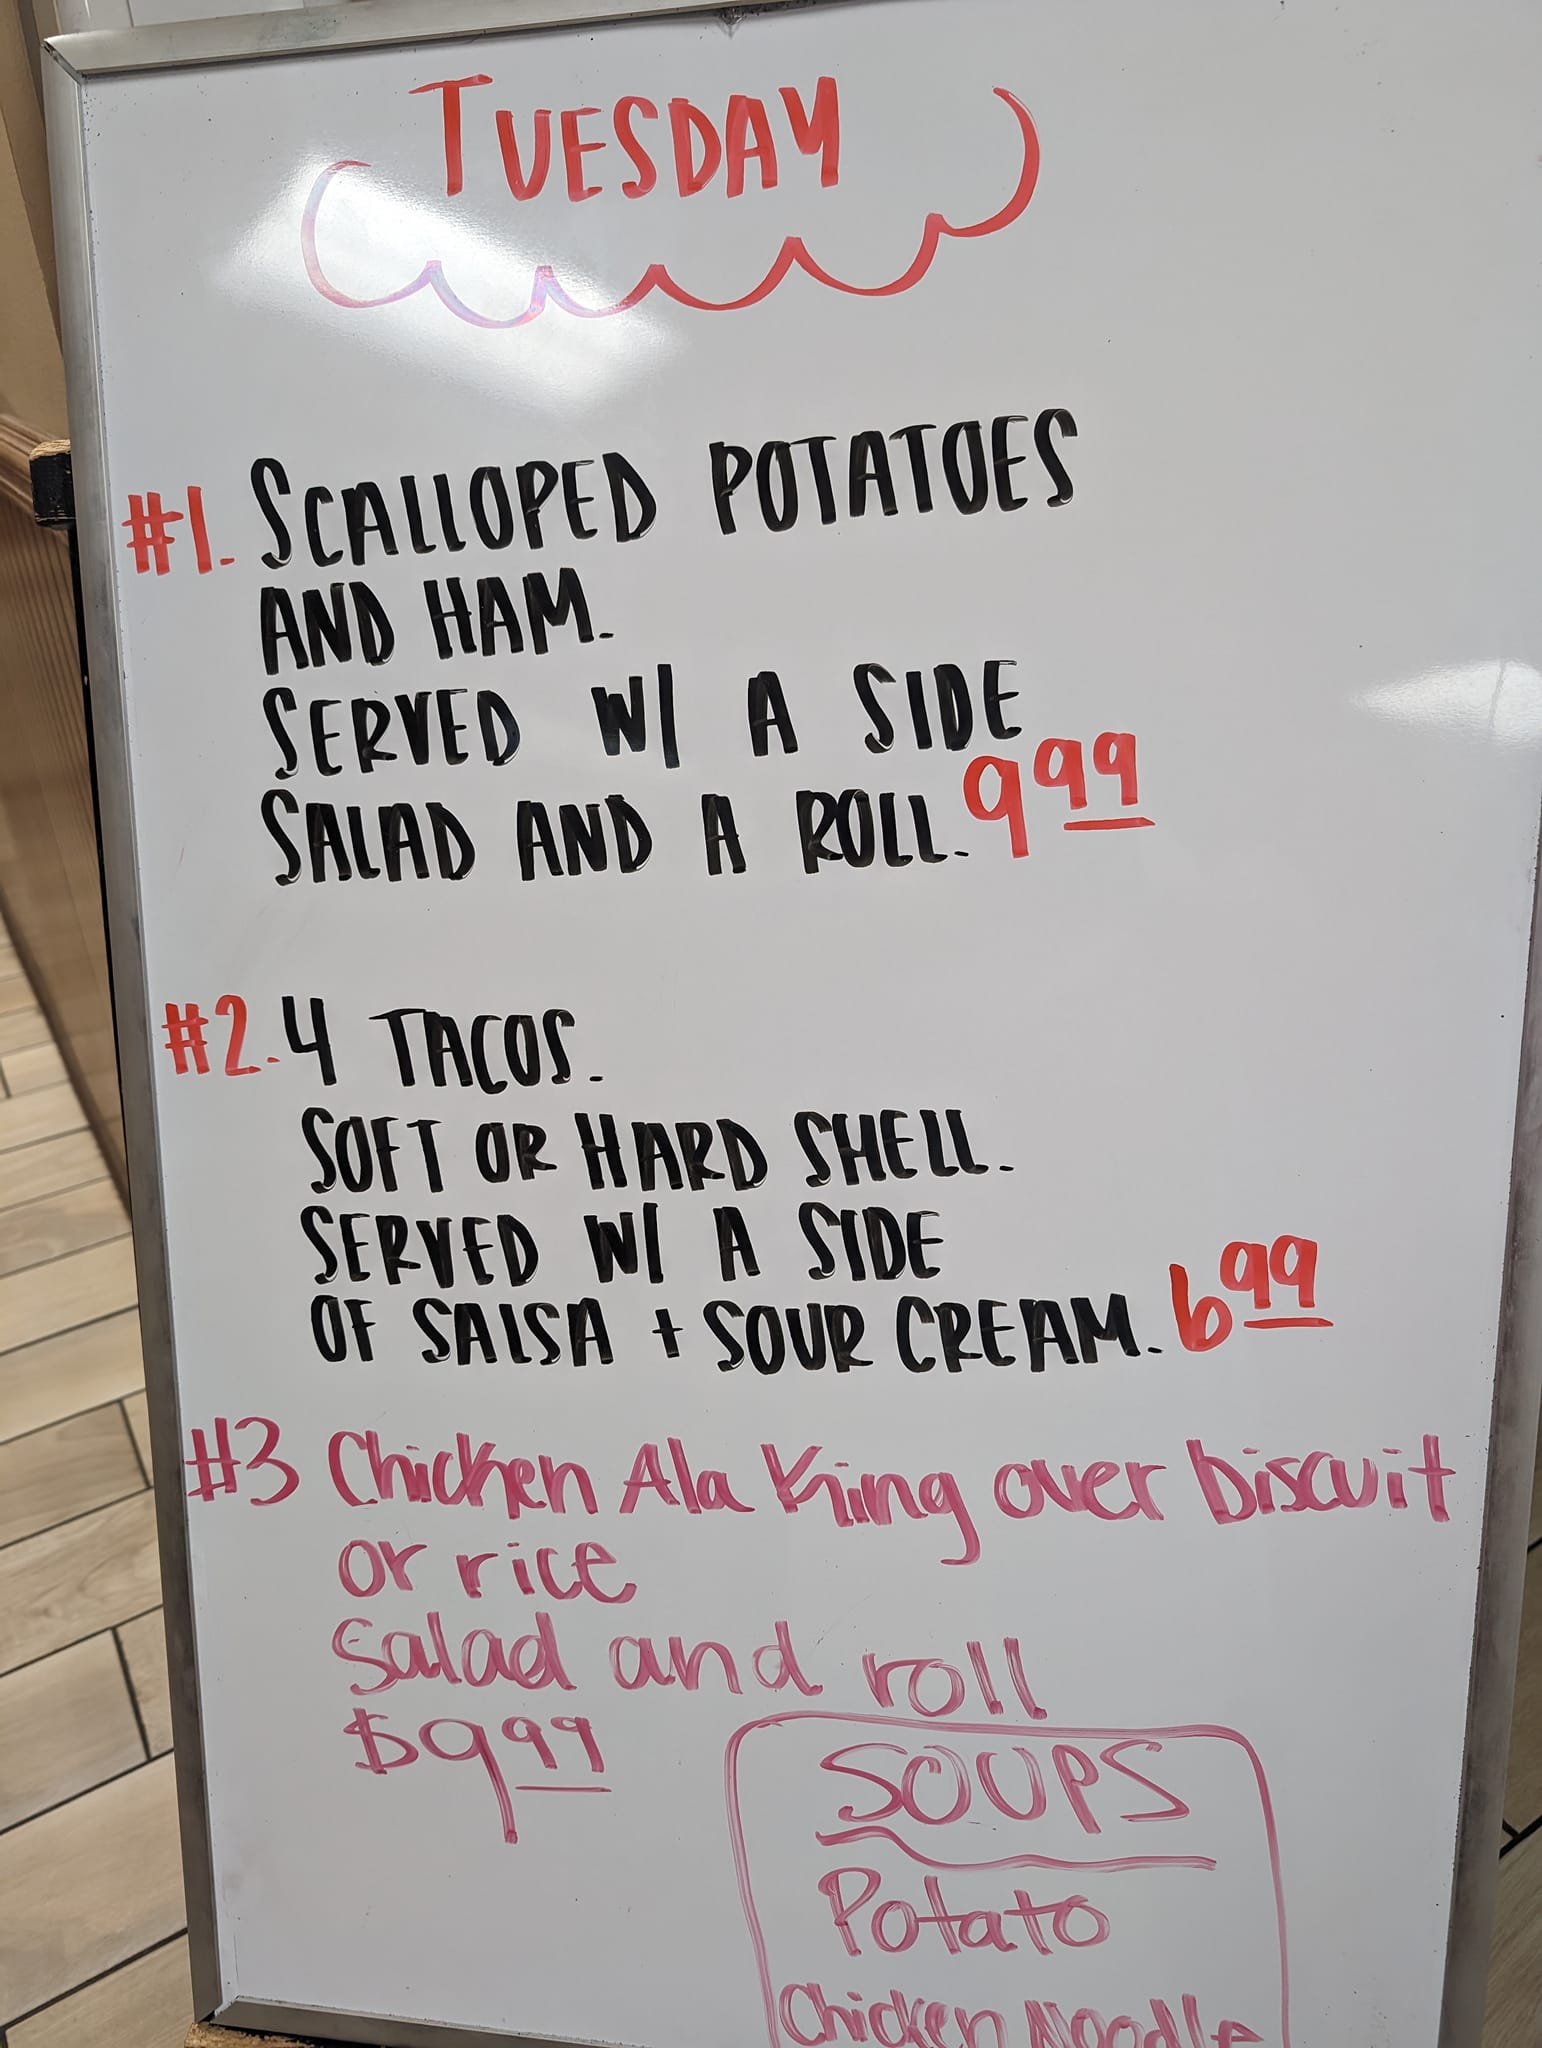 TUESDAY
#1. SCALLOPED POTATOES
AND HAM.
SERVED W/ A SIDE
SALAD AND A ROLL. 9.99
#2. 4 TACOS.
SOFT OR HARD SHELL.
SERVED W/ A SIDE
OF SALSA + SOUR CREAM. 6.99
#3 Chicken Ala King over biscuit
or rice
Salad and roll
$9.99
SOUPS
Potato
Chicken Noodle